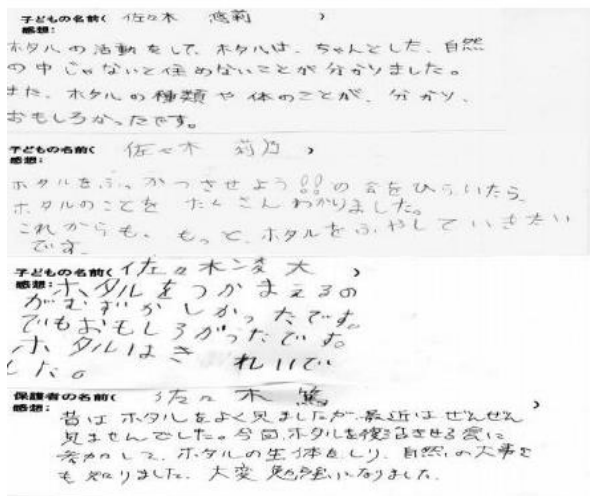 子どもの名前( 佐々木 悠莉 )
感想:
ホタルの活動をして、ホタルは、ちゃんとした、自然
の中じゃないと住めないことが分かりました。
また、ホタルの種類や体のことが、分かり、
おもしろかったです。
子どもの名前( 佐々木 莉乃 )
感想:
ホタルをふっかつさせよう!!の会をひらいたら、
ホタルのことを たくさんわかりました。
これからも、もっと、ホタルをふやしていきたい
です。
子どもの名前( 佐々木凌大 )
感想:ホタルをつかまえるの
がむずかしかったです。
でもおもしろかったです。
ホタルはきれいで
した。
保護者の名前( 佐々木 篤 )
感想:
昔はホタルをよく見ましたが、最近はぜんぜん
見ませんでした。今回、ホタルを復活させる会に
参加して、ホタルの生体をしり、自然の大事さ
も知りました。大変勉強になりました。